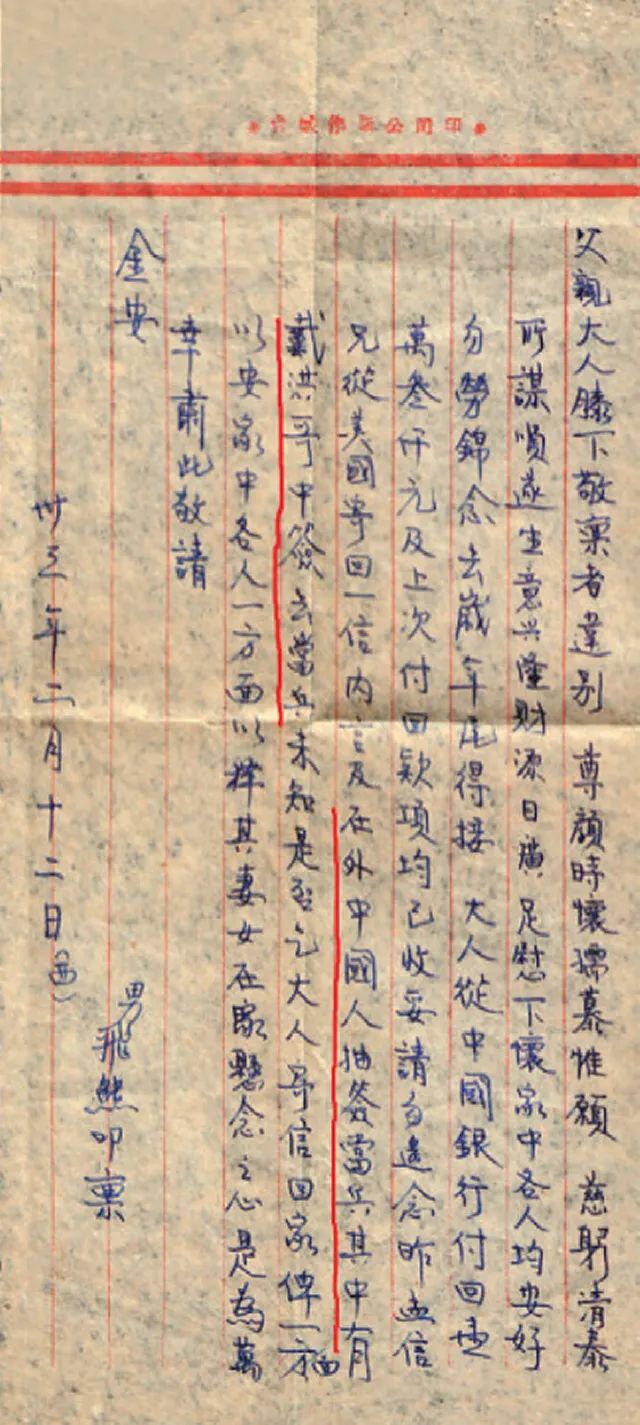 城 新公司印
父親大人膝下敬稟者違別 尊顏時懷孺慕惟願 慈躬清泰
所謀順遂生意兴隆財源日廣足慰下懷家中各人均安好
勿勞錦念去歲年尾得接 大人從中國銀行付回壹
萬叁仟元及上次付回欵項均已收妥請勿遠念昨孟信
兄從美國寄回一信內言及在外中國人抽簽當兵其中有
戴洪哥中簽去當兵未知是否乞大人寄信回家俾一方面
以安家中各人一方面以釋其妻女在家懸念之心是為萬
幸肅此敬請
金安
男飛熊叩稟
卅三年二月十二日